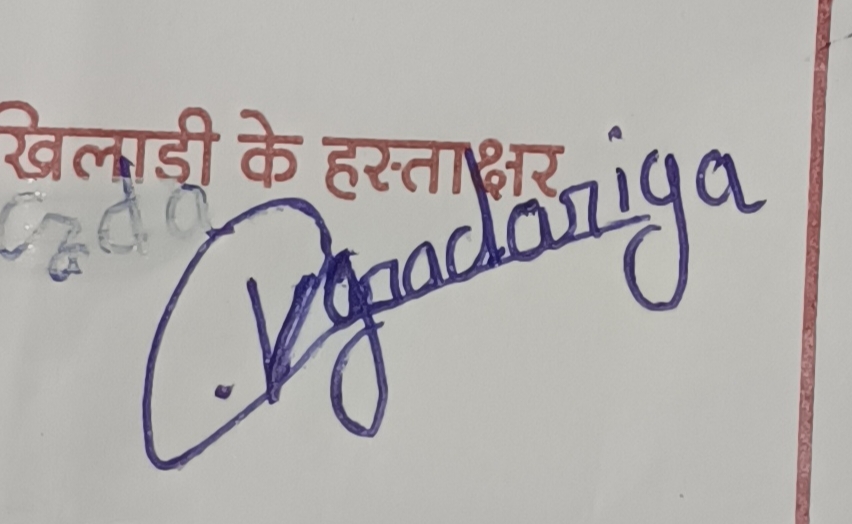 खिलाडी के हस्ताक्षर
Vgradariya